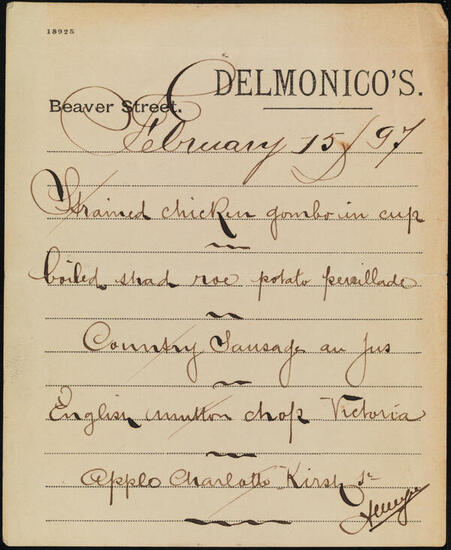 18925
DELMONICO'S.
Beaver Street.
February 15/97
Strained chicken gombo in cup
boiled shad roe potato persillade
Country Sausage au jus
English mutton chop Victoria
Apple Charlotte Kirsh